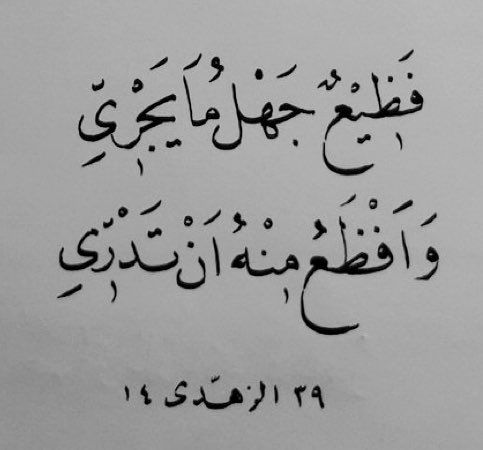 فَظِيْعٌ جَهْلُ مَا يَجْرِيّ
وَاَفْظَعُ مِنْهُ اَنْ تَدْرِيّ
٣٩ الزهّدى ١٤